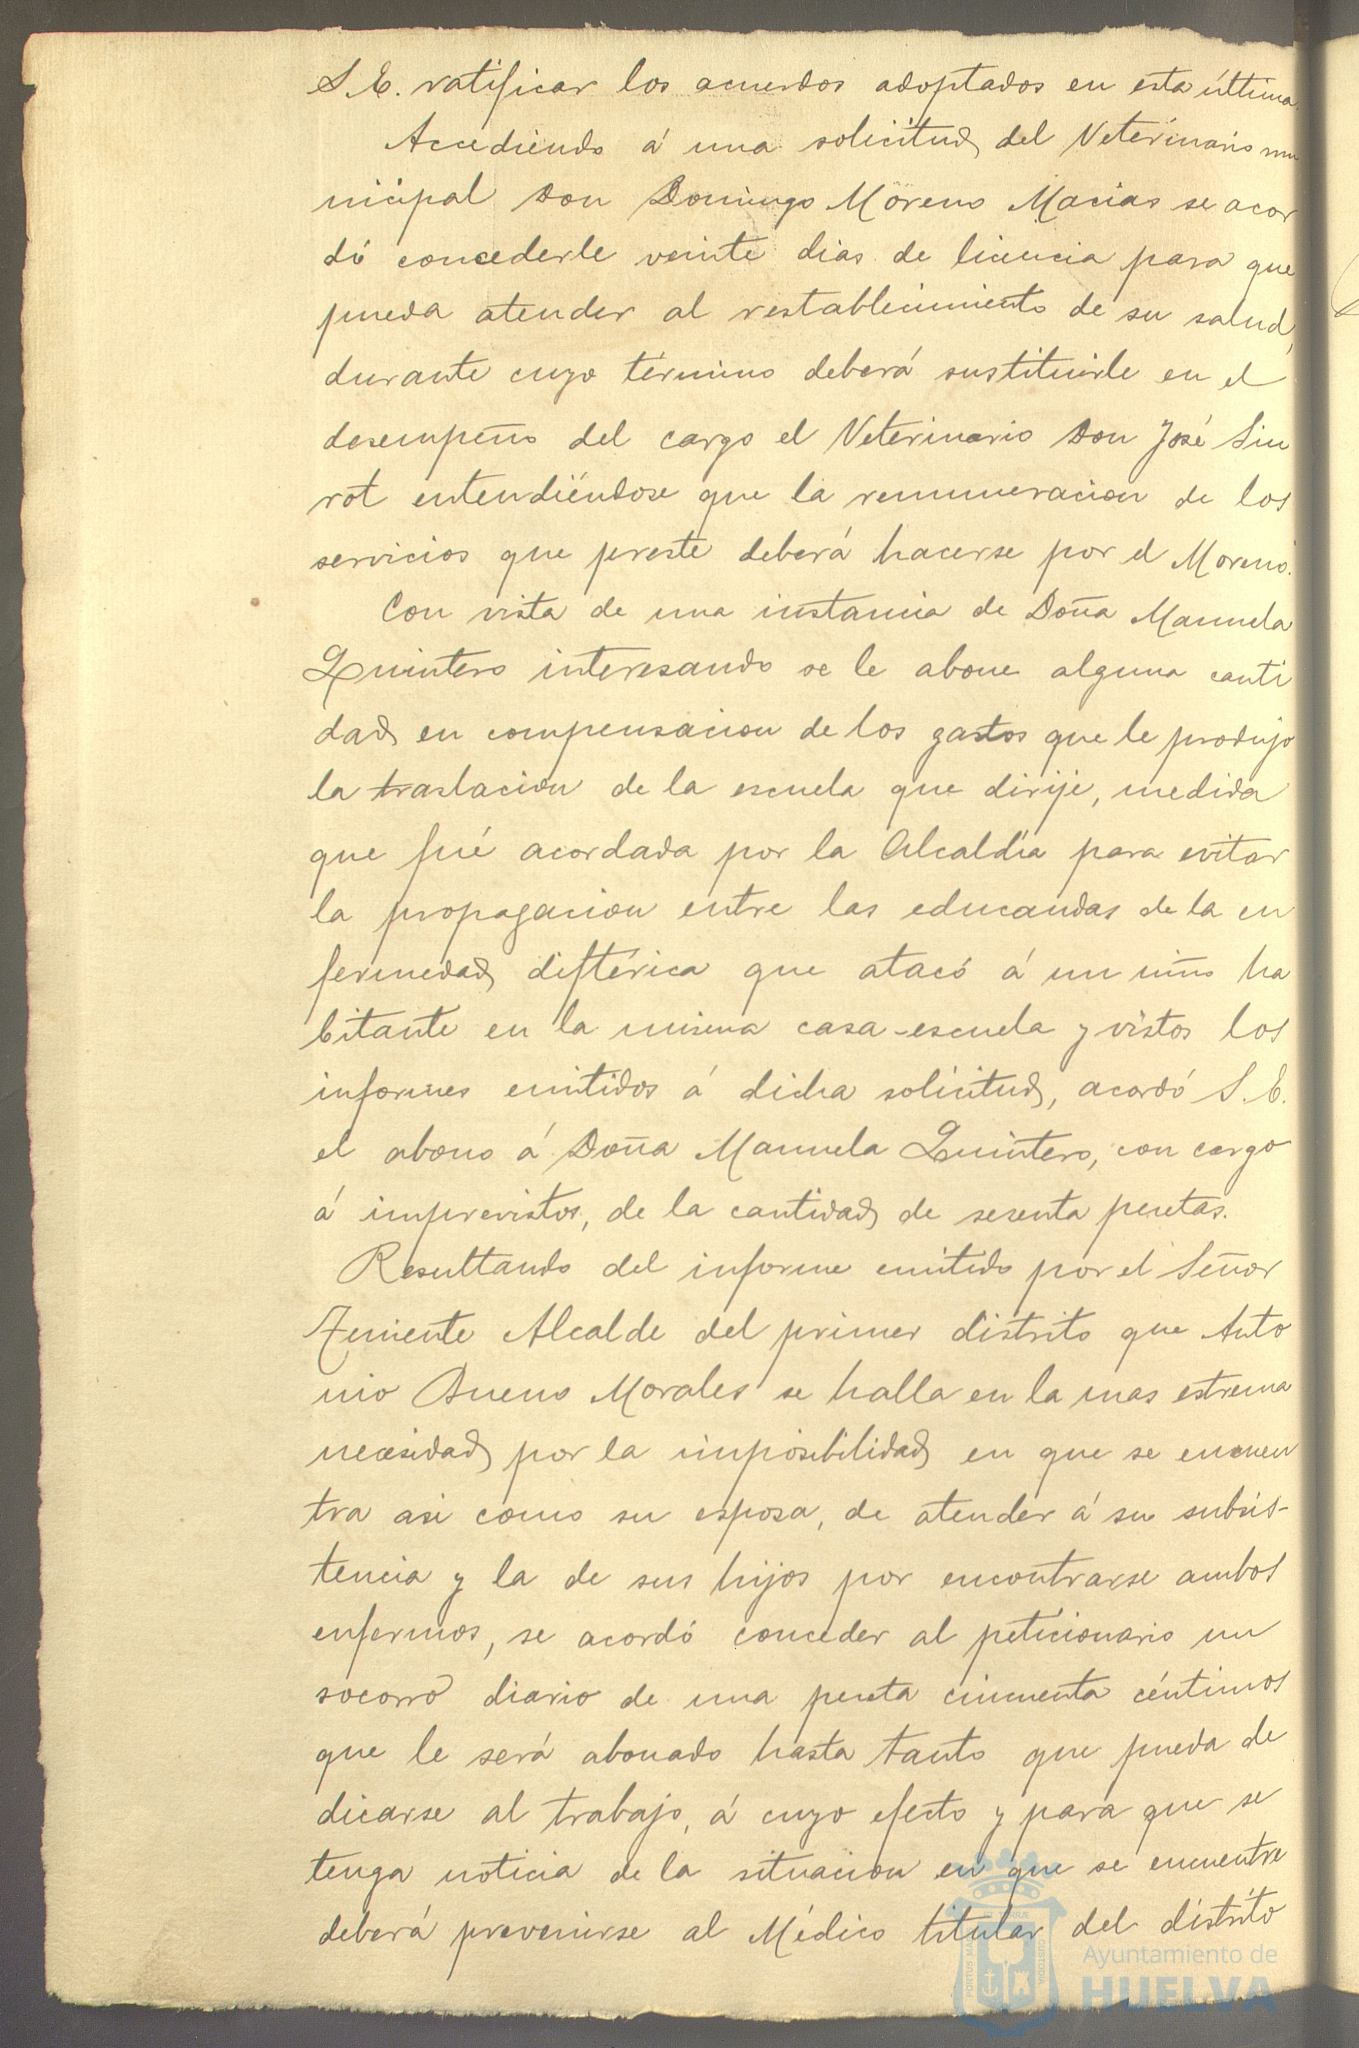 S. E. ratificar los acuerdos adoptados en esta última.
Accediendo á una solicitud del Veterinario mu
nicipal Don Domingo Moreno Macias se acor
dó concederle veinte dias de licencia para que
pueda atender al restablecimiento de su salud,
durante cuyo término deberá sustituirle en el
desempeño del cargo el Veterinario Don José Sin
rot entendiéndose que la remuneracion de los
servicios que preste deberá hacerse por el Moreno.
Con vista de una instancia de Doña Manuela
Quintero interesando se le abone alguna canti
dad en compensacion de los gastos que le produjo
la traslacion de la escuela que dirije, medida
que fué acordada por la Alcaldía para evitar
la propagacion entre las educandas de la en
fermedad diftérica que atacó á un niño ha
bitante en la misma casa-escuela y vistos los
informes emitidos á dicha solicitud, acordó S. E.
el abono á Doña Manuela Quintero, con cargo
á imprevistos, de la cantidad de sesenta pesetas.
Resultando del informe emitido por el Señor
Teniente Alcalde del primer distrito que Anto
nio Bueno Morales se halla en la mas estrema
necesidad por la imposibilidad en que se encuen
tra asi como su esposa, de atender á su subsis-
tencia y la de sus hijos por encontrarse ambos
enfermos, se acordó conceder al peticionario un
socorro diario de una peseta cincuenta céntimos
que le será abonado hasta tanto que pueda de
dicarse al trabajo, á cuyo efecto y para que se
tenga noticia de la situacion en que se encuentre
deberá prevenirse al Médico titular del distrito
Ayuntamiento de
HUELVA